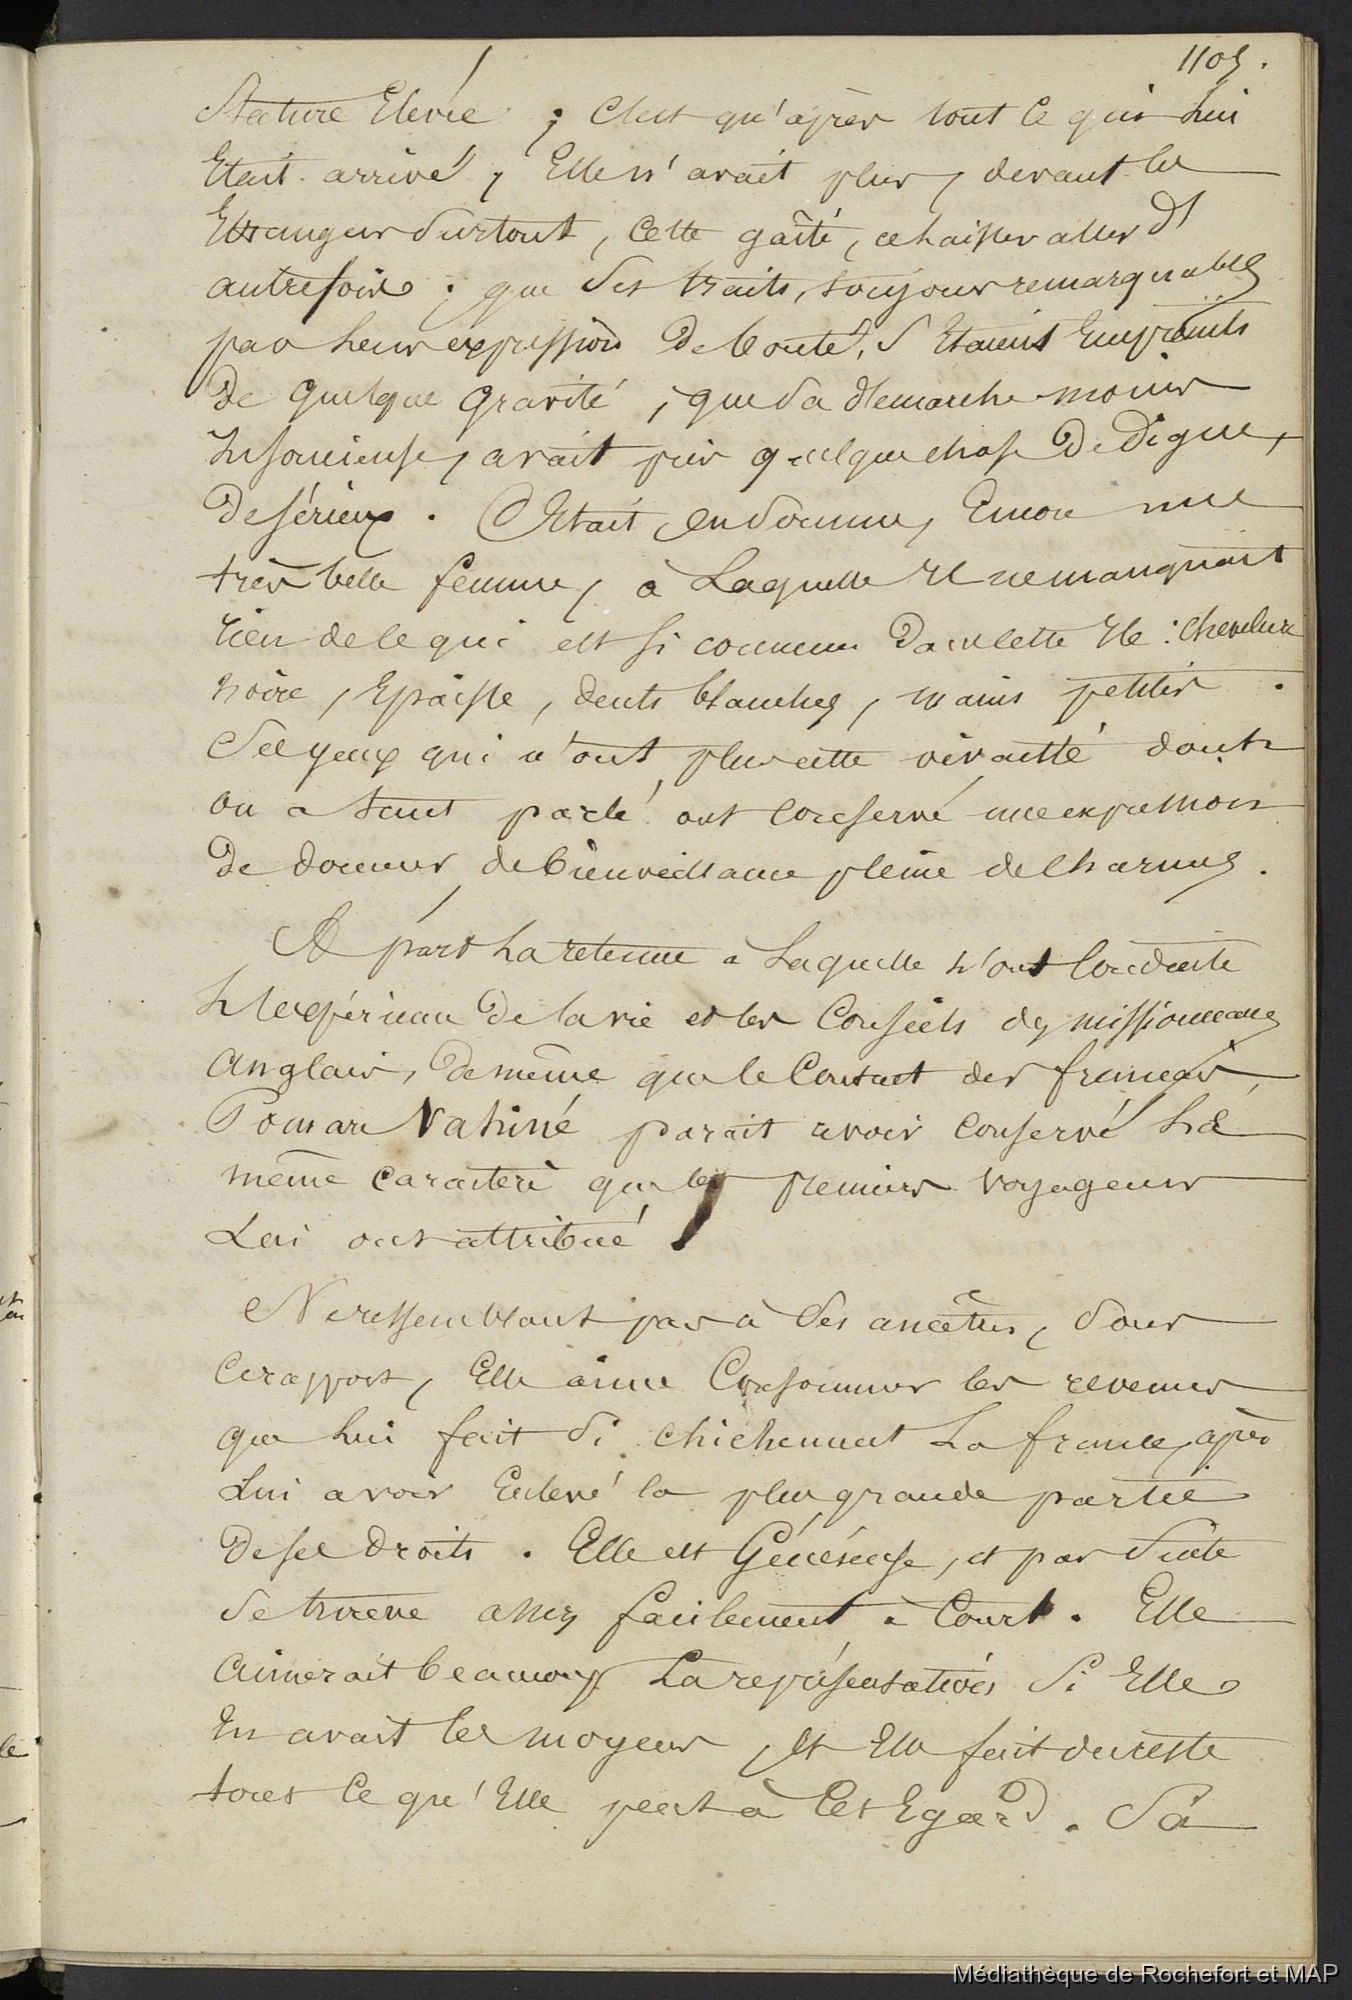 1105.
Stature Elevée ; C'est qu'après tout ce qui lui
Etait arrivé, Elle n'avait plus, devant les
Etrangers surtout, cette gaîté, ce laisser aller d'
autrefois ; que ses traits, toujours remarquables
par leur expression de bonté, s'Etaient Empreints
de quelque gravité, que sa démarche moins
Insouciense, avait pris quelque chose de digne,
de sérieux. C'Etait, en somme, Encore une
très belle femme, à Laquelle Il ne manquait
rien de ce qui est si commun dans cette Ile : chevelure
noire, Epaisse, dents blanches, mains petites.
Ses yeux qui n'ont plus cette vivacité dont
on a tant parlé ont conservé une expression
de douceur de bienveillance pleine de Charmes.
A part La retenue à Laquelle l'ont Conduite
L'expérience de la vie et les Conseils des missionnaires
Anglais, de même que le Contact des français,
Pomare Vahiné parait avoir conservé Le
même caractère que les premiers voyageurs
Lui ont attribué.
Ne ressemblant pas à ses ancêtres, sous
ce rapport, Elle aime Consommer les revenus
que Lui fait si chichement La france, après
Lui avoir Enlevé la plus grande partie
de ses droits. Elle est Généreuse, et par suite
se trouve assez facilement à Court. Elle
aimerait beaucoup La représentation si Elle
En avait les moyens, et Elle fait du reste
tout ce qu'Elle peut à cet Egard. Sa
Médiathèque de Rochefort et MAP